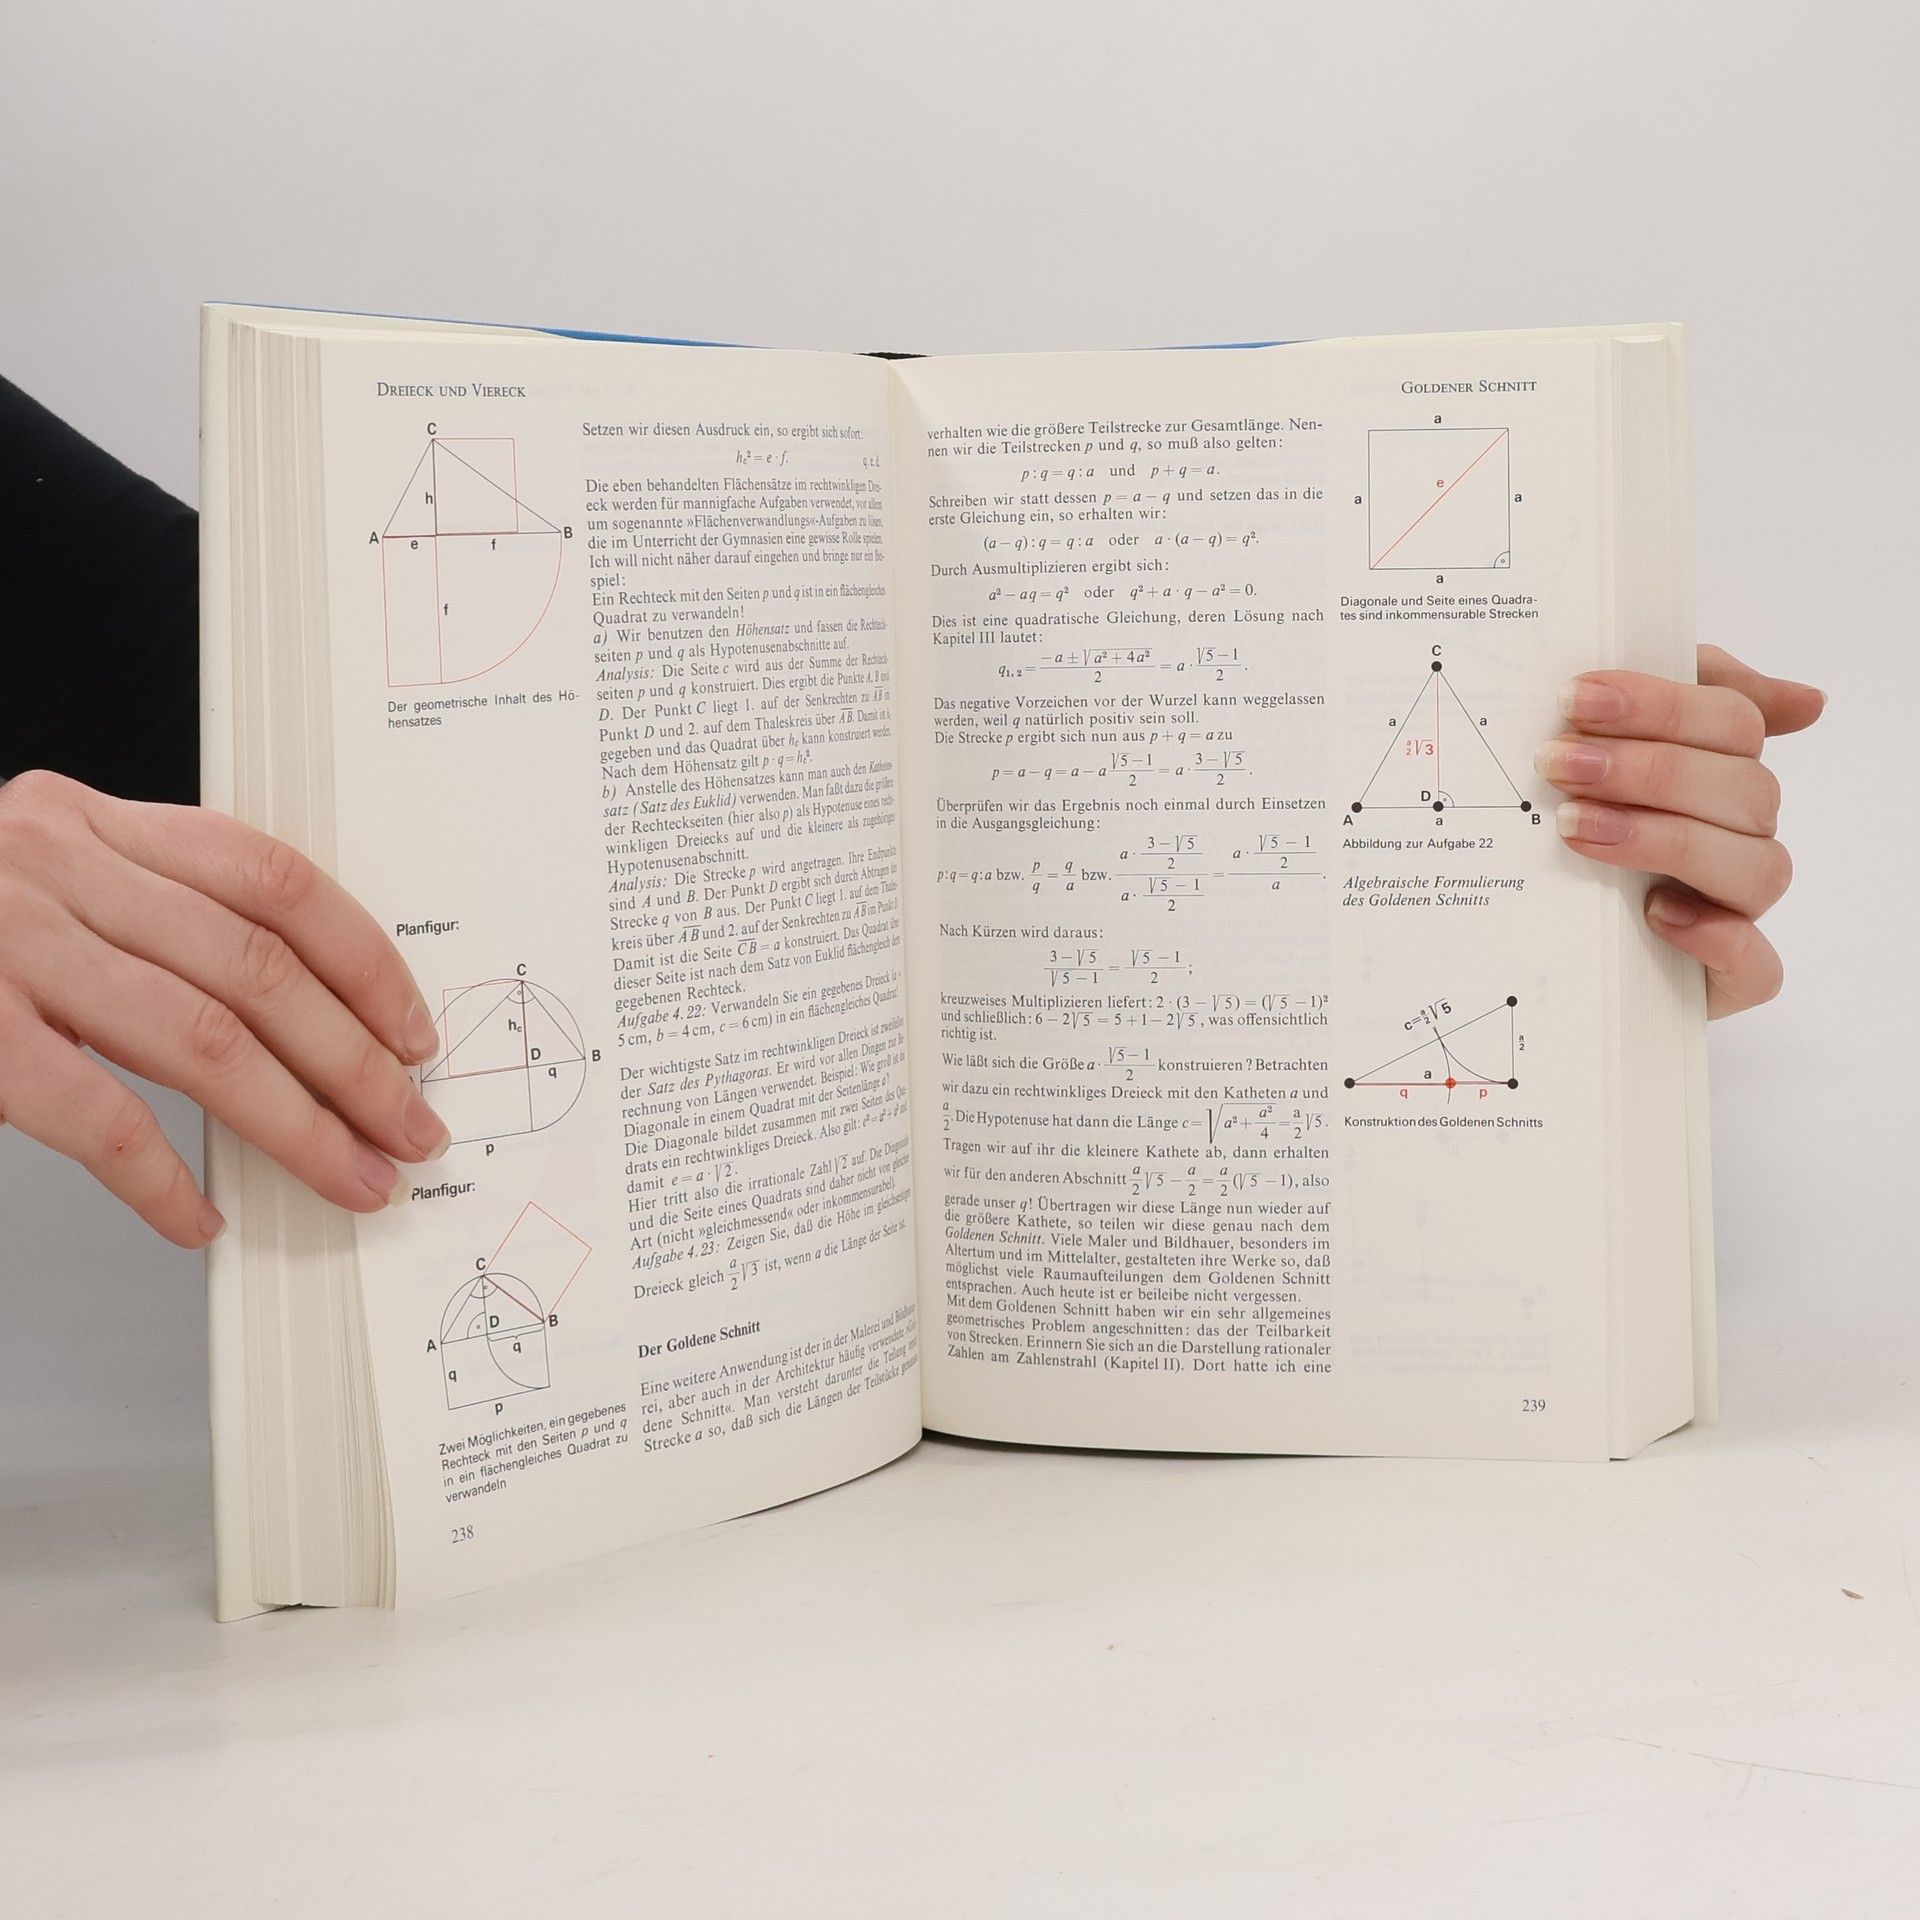 DREIECK UND VIERECK
C
h
A
B
e
f
f
Der geometrische Inhalt des Hö-
hensatzes
Planfigur:
C
hc
D
B
q
p
Planfigur:
C
A
D
B
q
q
p
Zwei Möglichkeiten, ein gegebenes
Rechteck mit den Seiten p und q
in ein flächengleiches Quadrat zu
verwandeln
238
Setzen wir diesen Ausdruck ein, so ergibt sich sofort:
hc² = e · f. q. e. d.
Die eben behandelten Flächensätze im rechtwinkligen Drei-
eck werden für mannigfache Aufgaben verwendet, vor allem
um sogenannte »Flächenverwandlungs«-Aufgaben zu lösen,
die im Unterricht der Gymnasien eine gewisse Rolle spielen.
Ich will nicht näher darauf eingehen und bringe nur ein Bei-
spiel:
Ein Rechteck mit den Seiten p und q ist in ein flächengleiches
Quadrat zu verwandeln!
a) Wir benutzen den Höhensatz und fassen die Rechteck-
seiten p und q als Hypotenusenabschnitte auf.
Analysis: Die Seite c wird aus der Summe der Rechteck-
seiten p und q konstruiert. Dies ergibt die Punkte A, B und
D. Der Punkt C liegt 1. auf der Senkrechten zu AB in
Punkt D und 2. auf dem Thaleskreis über AB. Damit ist hc
gegeben und das Quadrat über hc kann konstruiert werden.
Nach dem Höhensatz gilt p · q = hc².
b) Anstelle des Höhensatzes kann man auch den Katheten-
satz (Satz des Euklid) verwenden. Man faßt dazu die größere
der Rechteckseiten (hier also p) als Hypotenuse eines recht-
winkligen Dreiecks auf und die kleinere als zugehörigen
Hypotenusenabschnitt.
Analysis: Die Strecke p wird angetragen. Ihre Endpunkte
sind A und B. Der Punkt D ergibt sich durch Abtragen der
Strecke q von B aus. Der Punkt C liegt 1. auf dem Thales-
kreis über AB und 2. auf der Senkrechten zu AB im Punkt D.
Damit ist die Seite CB = a konstruiert. Das Quadrat über
dieser Seite ist nach dem Satz von Euklid flächengleich dem
gegebenen Rechteck.
Aufgabe 4.22: Verwandeln Sie ein gegebenes Dreieck (a =
5 cm, b = 4 cm, c = 6 cm) in ein flächengleiches Quadrat!
Der wichtigste Satz im rechtwinkligen Dreieck ist zweifellos
der Satz des Pythagoras. Er wird vor allen Dingen zur Be-
rechnung von Längen verwendet. Beispiel: Wie groß ist die
Diagonale in einem Quadrat mit der Seitenlänge a?
Die Diagonale bildet zusammen mit zwei Seiten des Qua-
drats ein rechtwinkliges Dreieck. Also gilt: e² = a² + a² und
damit e = a · √2.
Hier tritt also die irrationale Zahl √2 auf. Die Diagonale
und die Seite eines Quadrats sind daher nicht von gleicher
Art (nicht »gleichmessend« oder inkommensurabel).
Aufgabe 4.23: Zeigen Sie, daß die Höhe im gleichseitigen
Dreieck gleich a/2 √3 ist, wenn a die Länge der Seite ist.
Der Goldene Schnitt
Eine weitere Anwendung ist der in der Malerei und Bildhaue-
rei, aber auch in der Architektur häufig verwendete »Gol-
dene Schnitt«. Man versteht darunter die Teilung einer
Strecke a so, daß sich die Längen der Teilstücke genauso
GOLDENER SCHNITT
verhalten wie die größere Teilstrecke zur Gesamtlänge. Nen-
nen wir die Teilstrecken p und q, so muß also gelten:
p : q = q : a und p + q = a.
Schreiben wir statt dessen p = a − q und setzen das in die
erste Gleichung ein, so erhalten wir:
(a − q) : q = q : a oder a · (a − q) = q².
Durch Ausmultiplizieren ergibt sich:
a² − aq = q² oder q² + a · q − a² = 0.
Dies ist eine quadratische Gleichung, deren Lösung nach
Kapitel III lautet:
q1,2 = (−a ± √(a² + 4a²))/2 = a · (√5 − 1)/2.
Das negative Vorzeichen vor der Wurzel kann weggelassen
werden, weil q natürlich positiv sein soll.
Die Strecke p ergibt sich nun aus p + q = a zu
p = a − q = a − a (√5 − 1)/2 = a · (3 − √5)/2.
Überprüfen wir das Ergebnis noch einmal durch Einsetzen
in die Ausgangsgleichung:
p : q = q : a bzw. p/q = q/a bzw. (a · (3 − √5)/2)/(a · (√5 − 1)/2) = (a · (√5 − 1)/2)/a.
Nach Kürzen wird daraus:
(3 − √5)/(√5 − 1) = (√5 − 1)/2;
kreuzweises Multiplizieren liefert: 2 · (3 − √5) = (√5 − 1)²
und schließlich: 6 − 2√5 = 5 + 1 − 2√5, was offensichtlich
richtig ist.
Wie läßt sich die Größe a · (√5 − 1)/2 konstruieren? Betrachten
wir dazu ein rechtwinkliges Dreieck mit den Katheten a und
a/2. Die Hypotenuse hat dann die Länge c = √(a² + a²/4) = a/2 √5.
Tragen wir auf ihr die kleinere Kathete ab, dann erhalten
wir für den anderen Abschnitt a/2 √5 − a/2 = a/2 (√5 − 1), also
gerade unser q! Übertragen wir diese Länge nun wieder auf
die größere Kathete, so teilen wir diese genau nach dem
Goldenen Schnitt. Viele Maler und Bildhauer, besonders im
Altertum und im Mittelalter, gestalteten ihre Werke so, daß
möglichst viele Raumaufteilungen dem Goldenen Schnitt
entsprachen. Auch heute ist er beileibe nicht vergessen.
Mit dem Goldenen Schnitt haben wir ein sehr allgemeines
geometrisches Problem angeschnitten: das der Teilbarkeit
von Strecken. Erinnern Sie sich an die Darstellung rationaler
Zahlen am Zahlenstrahl (Kapitel II). Dort hatte ich eine
a
a
e
a
a
Diagonale und Seite eines Quadra-
tes sind inkommensurable Strecken
C
a
a
a/2 √3
D
A
a
B
Abbildung zur Aufgabe 22
Algebraische Formulierung
des Goldenen Schnitts
c = a/2 √5
a/2
a
q
p
Konstruktion des Goldenen Schnitts
239